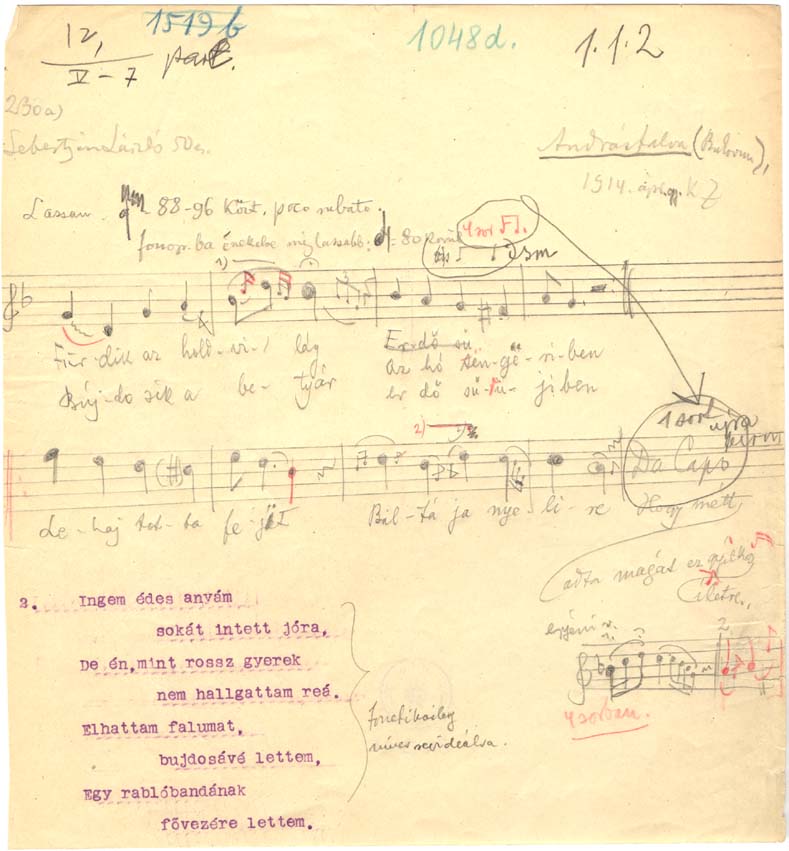 12,
1519 b
1048 d.
1.1.2
V-7
230a)
Sebestyén László 50 é.
Andrásfalva (Bukovina),
1914. ápr. K Z
Lassan. 88-96 közt, poco rubato.
fonogr.ba énekelve még lassabb: = 80 körül
4 sor
1)
Für-dik az hold-vi-lág Er-dő sű az hó ten-gë-ri-ben
Búj-do sik a be-tyár er dő sű-rű-ji ben
1 sort
újra
2)
Da Capo
Le-haj tot-ta fe-jit Bal-tá ja nye-li-re Hogy métt
adta magát ez gyilkos
életre.
2
4 sorban.
2. Ingem édes anyám
sokát intett jóra,
De én,mint rossz gyerek
nem hallgattam reá.
Elhattam falumat,
bujdosávé lettem,
Egy rablóbandának
fővezére lettem.
Fonetikailag
revideálva.